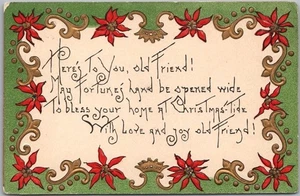 Here's To You, old Friend!
May Fortune's hand be opened wide
To bless your home at Christmas-Tide
With Love and joy old Friend!